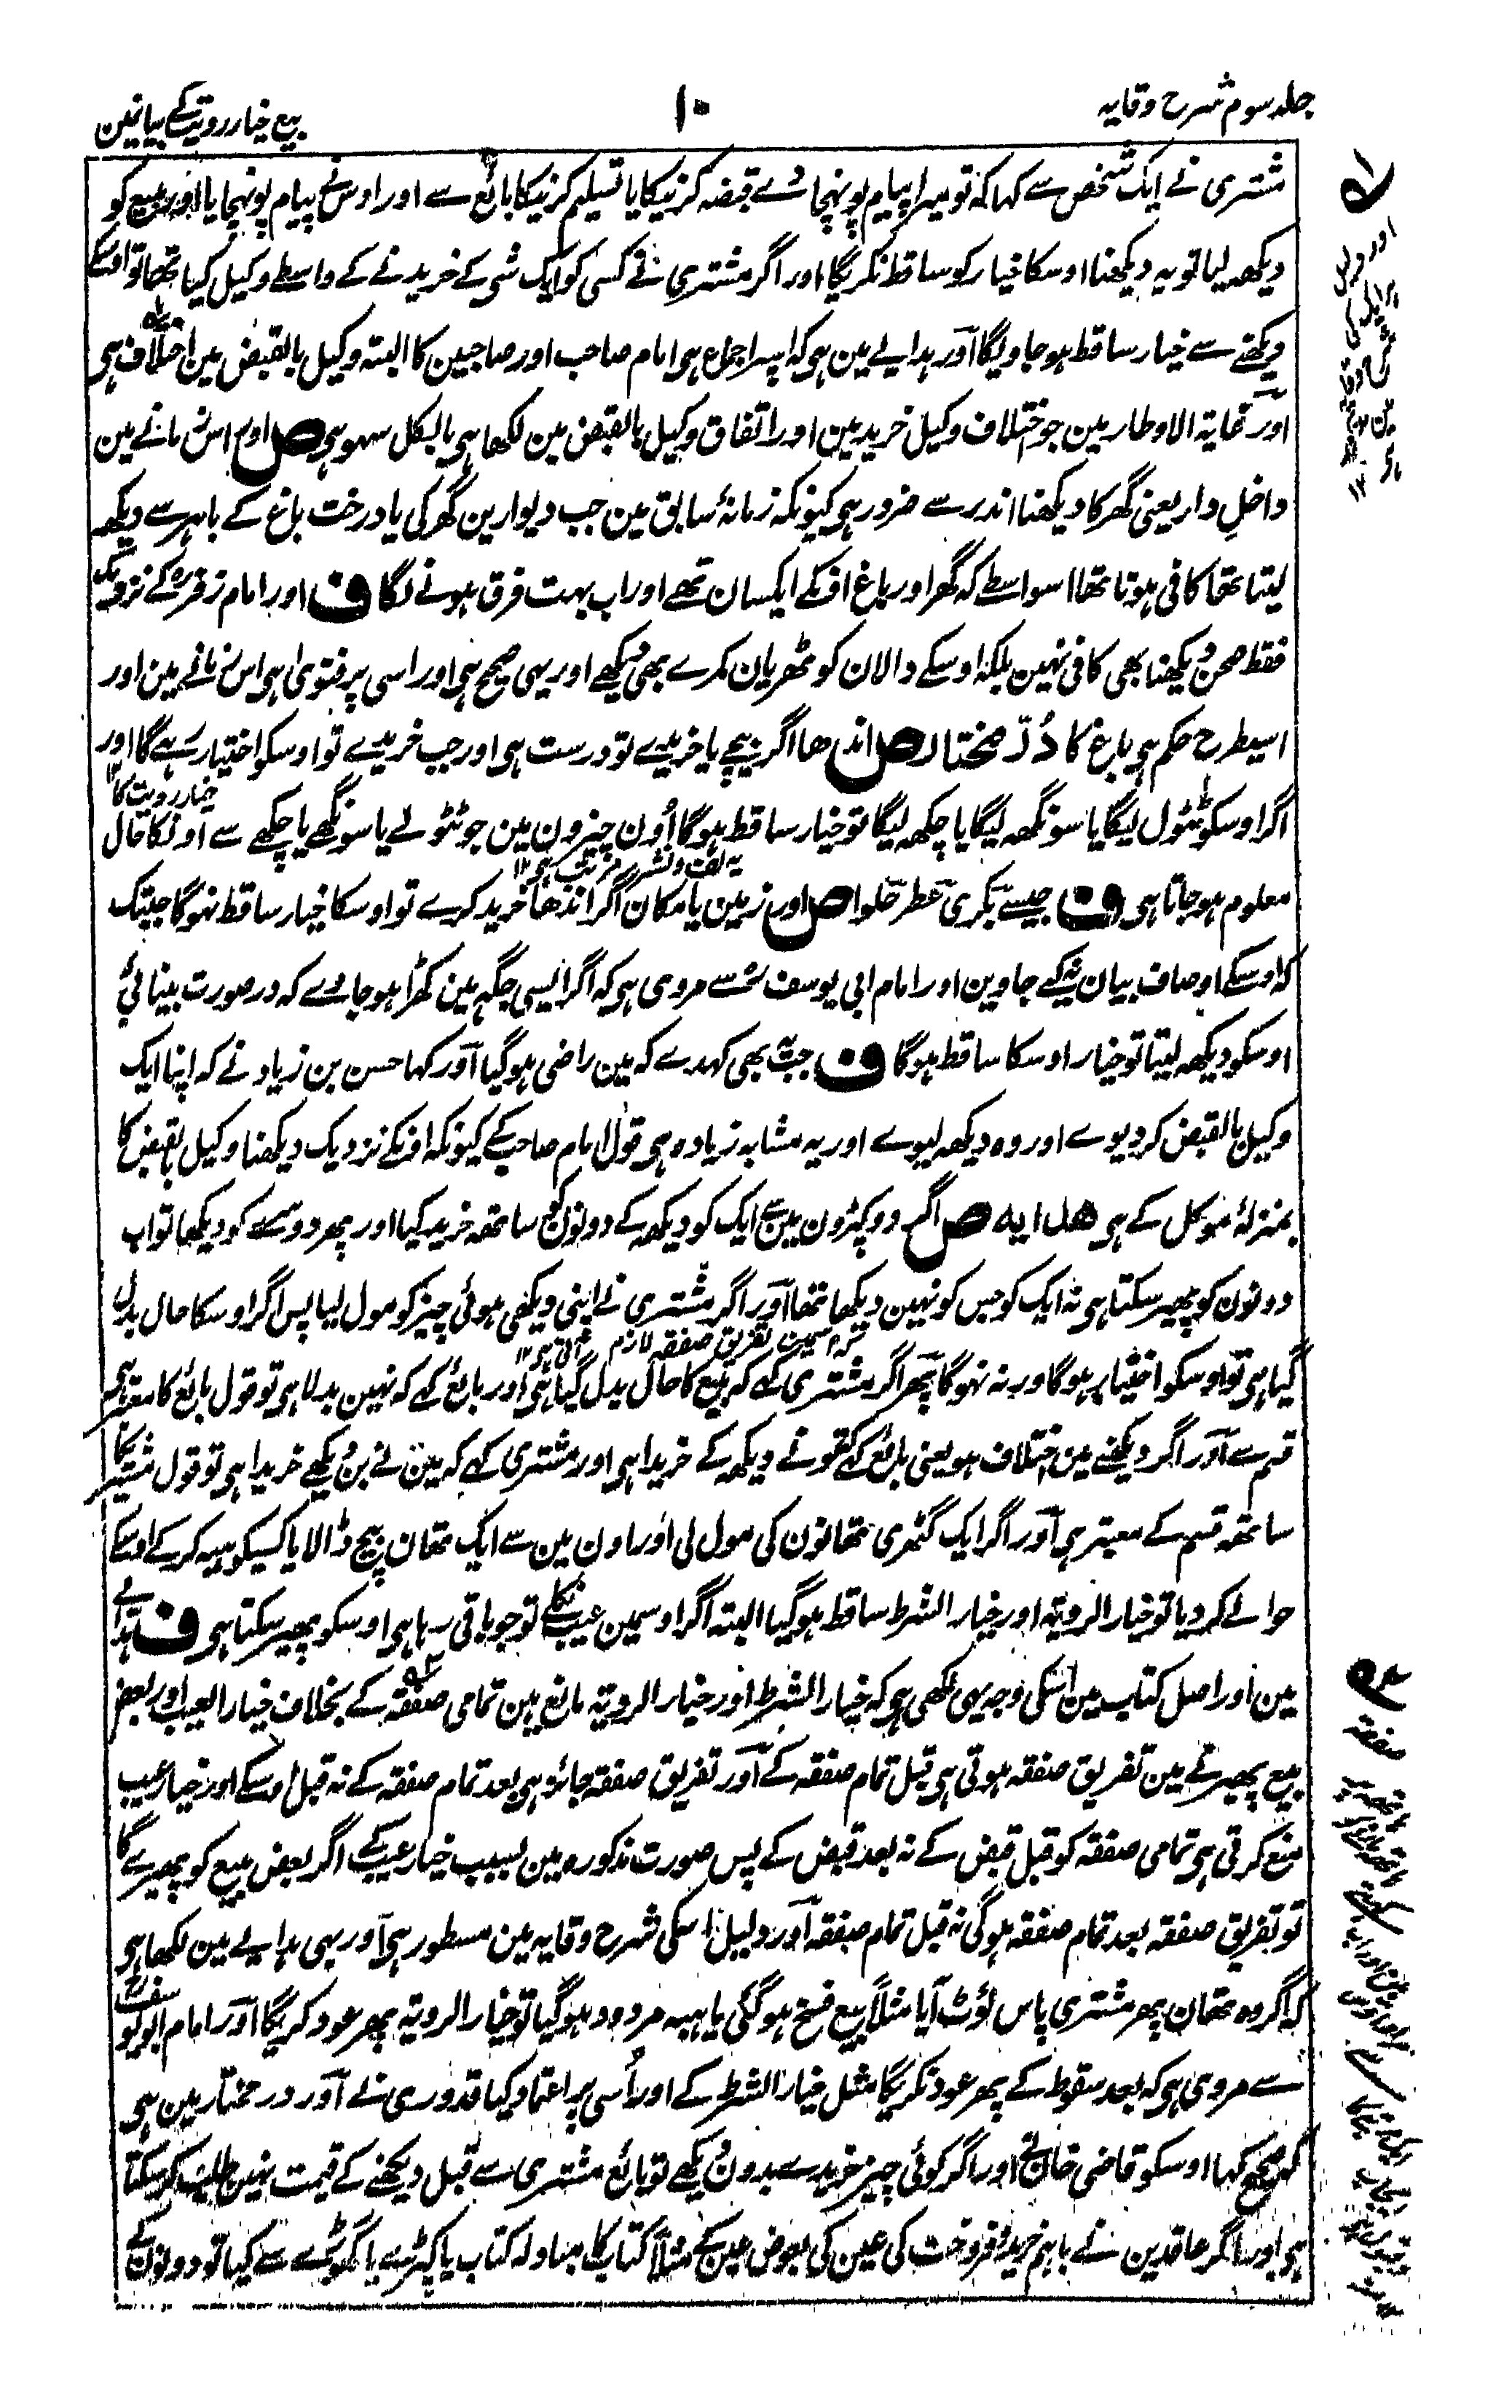 جلد سوم شرح وقایہ
۱۰
بیع خیار رویت کے بیانمین
مشتری نے ایک شخص سے کہا کہ تو میرا پیام پونہچا دے قبضہ کرنیکا یا تسلیم کرنیکا بائع سے اور اوسنے پیام پونہچایا اور مبیع کو
دیکھہ لیا تو یہ دیکھنا اوسکا خیار کو ساقط نکریگا اور اگر مشتری نے کسی کو ایک شی کے خریدنے کے واسطے وکیل کیا تھا تو اوسکے
دیکھنے سے خیار ساقط ہو جاویگا اور ہدایے مین ہی کہ اسپر اجماع ہی امام صاحب اور صاحبین کا البتہ وکیل بالقبض مین اختلاف ہی
اور غایۃ الاوطار مین جو اختلاف وکیل خرید مین اور اتفاق وکیل بالقبض مین لکھا ہی بالکل سہو ہی ص اور اس زمانے مین
داخلِ دار یعنی گھر کا دیکھنا اندر سے ضرور ہی کیونکہ زمانۂ سابق مین جب دیوارین گھر کی یا درخت باغ کے باہر سے دیکھہ
لیتا تھا کافی ہوتا تھا اسواسطے کہ گھر اور باغ اونکے ایکسان تھے اور اب بہت فرق ہونے لگا ف اور امام زفرؒ کے نزدیک
فقط صحن دیکھنا بھی کافی نہین بلکہ اوسکے دالان کوٹھریان کمرے بھی دیکھے اور یہی صحیح ہی اور اسی پر فتویٰ ہی اس زمانے مین اور
اسیطرح حکم ہی باغ کا دُرّ مختار ص اندھا اگر بیچے یا خریدے تو درست ہی اور جب خریدے تو اوسکو اختیار رہے گا اور
خیار رویت کا ۱۲
اگر اوسکو ٹٹول لیگا یا سونگھہ لیگا یا چکھہ لیگا تو خیار ساقط ہوگا اُون چیزون مین جو ٹٹولے یا سونگھے یا چکھے سے اونکا حال
یہ لف و نشر مرتب ہی ۱۲
معلوم ہو جاتا ہی ف جیسے بکری عطر حلوا ص اور زمین یا مکان اگر اندھا خرید کرے تو اوسکا خیار ساقط نہوگا جبتک
کہ اوسکے اوصاف بیان نہ کیے جاوین اور امام ابی یوسفؒ سے مروی ہی کہ اگر ایسی جگہ مین کھڑا ہو جاوے کہ در صورت بینائی
اوسکو دیکھہ لیتا تو خیار اوسکا ساقط ہوگا ف جب یہ بھی کہدے کہ مین راضی ہو گیا اور کہا حسن بن زیاد نے کہ اپنا ایک
وکیل بالقبض کر دیوے اور وہ دیکھہ لیوے اور یہ مشابہ زیادہ ہی قول امام صاحب کے کیونکہ اونکے نزدیک دیکھنا وکیل بالقبض کا
بمنزلۂ موکل کے ہی ھدایہ ص اگر دو کپڑون مین سے ایک کو دیکھہ کے دونون کو ساتھہ خرید کیا اور پھر دوسرے کو دیکھا تو اب
دونون کو پھیر سکتا ہی نہ ایک کو جس کو نہین دیکھا تھا اور اگر مشتری نے اپنی دیکھی ہوئی چیز کو مول لیا پس اگر اوسکا حال بدل
تو اسمین تفریق صفقہ لازم آتی ہی ۱۲
گیا ہی تو اوسکو اختیار ہوگا ورنہ نہوگا پھر اگر مشتری کہے کہ مبیع کا حال بدل گیا ہی اور بائع کہے کہ نہین بدلا ہی تو قول بائع کا معتبر ہی
قسم سے اور اگر دیکھنے مین اختلاف ہو یعنی بائع کہے کہ تونے دیکھہ کے خریدا ہی اور مشتری کہے کہ مین نے بن دیکھے خریدا ہی تو قول مشتریکا
ساتھہ قسم کے معتبر ہی اور اگر ایک گٹھری تھانون کی مول لی اور اون مین سے ایک تھان بیچ ڈالا یا کسیکو ہبہ کر کے اوسکے
حوالے کر دیا تو خیار الرویۃ اور خیار الشرط ساقط ہو گیا البتہ اگر اوسمین عیب نکلے تو جو باقی رہا ہی اوسکو پھیر سکتا ہی ف ہدایے
مین اور اصل کتاب مین اسکی وجہ یہی لکھی ہی کہ خیار الشرط اور خیار الرویۃ مانع ہین تمامی صفقہ کے بخلاف خیار العیب اور بعض
مبیع پھیرنے مین تفریق صفقہ ہوتی ہی قبل تمام صفقہ کے اور تفریق صفقہ جائز ہی بعد تمام صفقہ کے نہ قبل اوسکے اور خیار عیب
منع کرتی ہی تمامی صفقہ کو قبل قبض کے نہ بعد قبض کے پس صورت مذکورہ مین بسبب خیار عیب کے اگر بعض مبیع کو پھیرے گا
تو تفریق صفقہ بعد تمام صفقہ ہوگی نہ قبل تمام صفقہ اور دلیل اسکی شرح وقایہ مین مسطور ہی اور یہی ہدایے مین لکھا ہی
کہ اگر وہ تھان پھر مشتری پاس لوٹ آیا مثلاً بیع فسخ ہو گئی یا ہبہ مردود ہو گیا تو خیار الرویۃ پھر عود کریگا اور امام ابویوسفؒ
سے مروی ہی کہ بعد سقوط کے پھر عود نکریگا مثل خیار الشرط کے اور اُسی پر اعتماد کیا قدوری نے اور در مختار مین ہی
کہ صحیح کہا اوسکو قاضی خان نے اور اگر کوئی چیز خریدے بدون دیکھے تو بائع مشتری سے قبل دیکھنے کے قیمت نہین طلب کر سکتا
ہی اور اگر عاقدین نے باہم خرید و فروخت کی عین کی بعوض عین کے مثلاً کتاب کا مبادلہ کتاب یا کپڑے یا گھوڑے سے کیا تو دونون کے
صفقہ